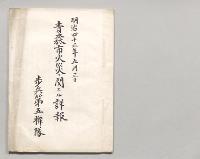 明治四十三年五月三日
青森市火災ニ関スル詳報
歩兵第五聯隊